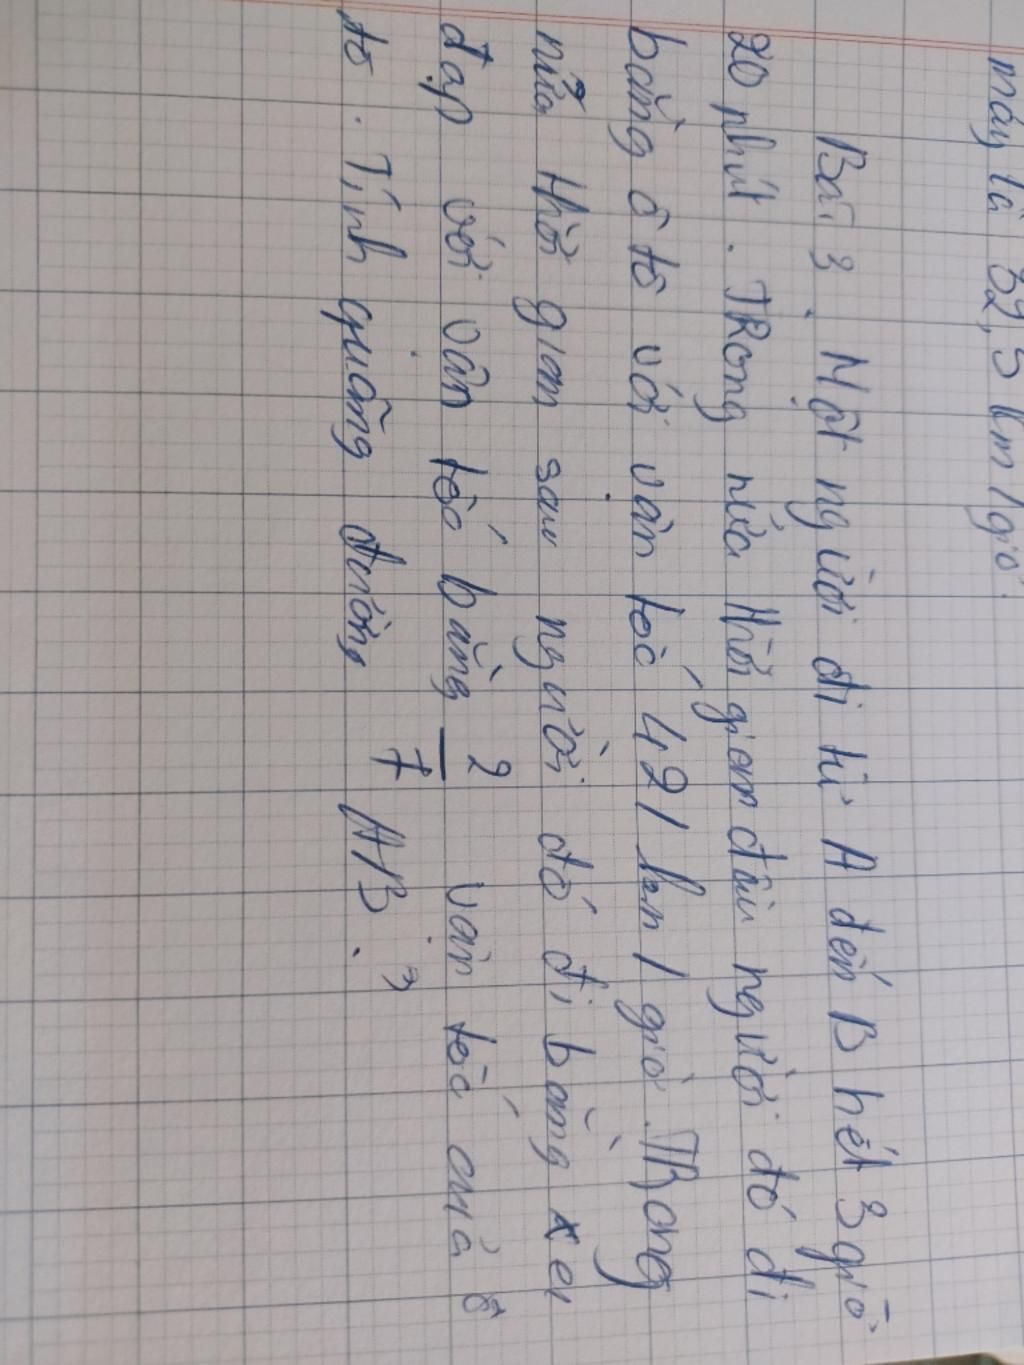 máy là 32,5 km/giờ.
Bài 3. Một người đi từ A đến B hết 3 giờ
20 phút. TRong nửa thời gian đầu người đó đi
bằng ô tô với vận tốc 42 / km / giờ. TRong
nửa thời gian sau người đó đi bằng xe
đạp với vận tốc bằng 2/7 vận tốc của ô
tô. Tính quãng đường AB.?